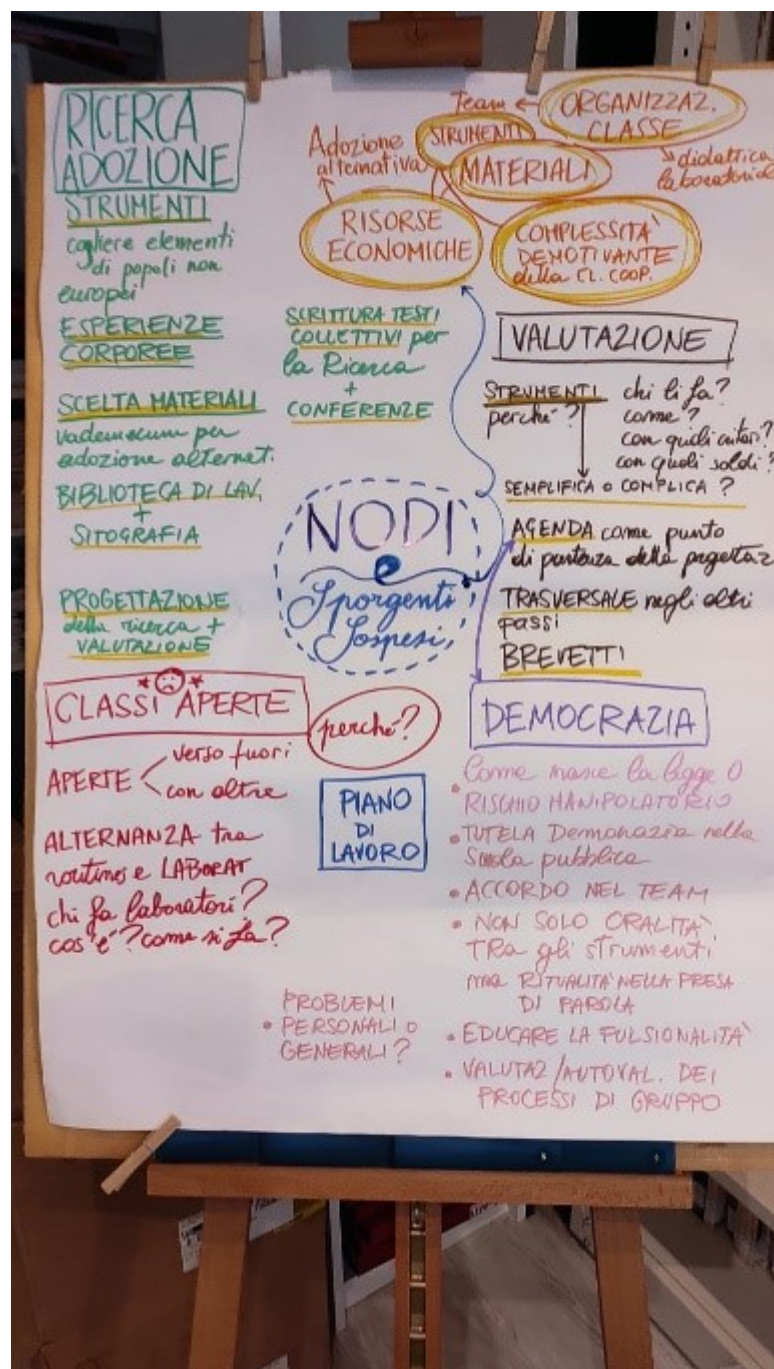 RICERCA
ADOZIONE
STRUMENTI
cogliere elementi
di popoli non
europei
ESPERIENZE
CORPOREE
SCELTA MATERIALI
vademecum per
adozione alternat.
BIBLIOTECA DI LAV,
+
SITOGRAFIA
PROGETTAZIONE
della ricerca +
VALUTAZIONE
SCRITTURA TESTI
COLLETTIVI per
la Ricerca
+
CONFERENZE
Team
ORGANIZZAZ.
CLASSE
didattica
laboratoriale
Adozione
alternativa
STRUMENTI
MATERIALI
RISORSE
ECONOMICHE
COMPLESSITÀ
DEMOTIVANTE
della CL. COOP.
VALUTAZIONE
STRUMENTI chi li fa?
perché? come?
con quali criteri?
con quali soldi?
SEMPLIFICA O COMPLICA?
AGENDA come punto
di partenza della progettaz
TRASVERSALE negli altri
passi
BREVETTI
NODI
e
Sporgenti
Sospesi
CLASSI APERTE
perché?
APERTE verso fuori
con altre
ALTERNANZA tra
routines e LABORAT
chi fa laboratori?
cos'é? come si fa?
PIANO
DI
LAVORO
DEMOCRAZIA
• Come nasce la legge O
RISCHIO MANIPOLATORIO
• TUTELA Democrazia nella
Scuola pubblica
• ACCORDO NEL TEAM
• NON SOLO ORALITÀ
TRA gli strumenti
ma RITUALITÀ NELLA PRESA
DI PAROLA
• EDUCARE LA PULSIONALITÀ
• VALUTAZ/AUTOVAL. DEI
PROCESSI DI GRUPPO
PROBLEMI
• PERSONALI O
GENERALI?